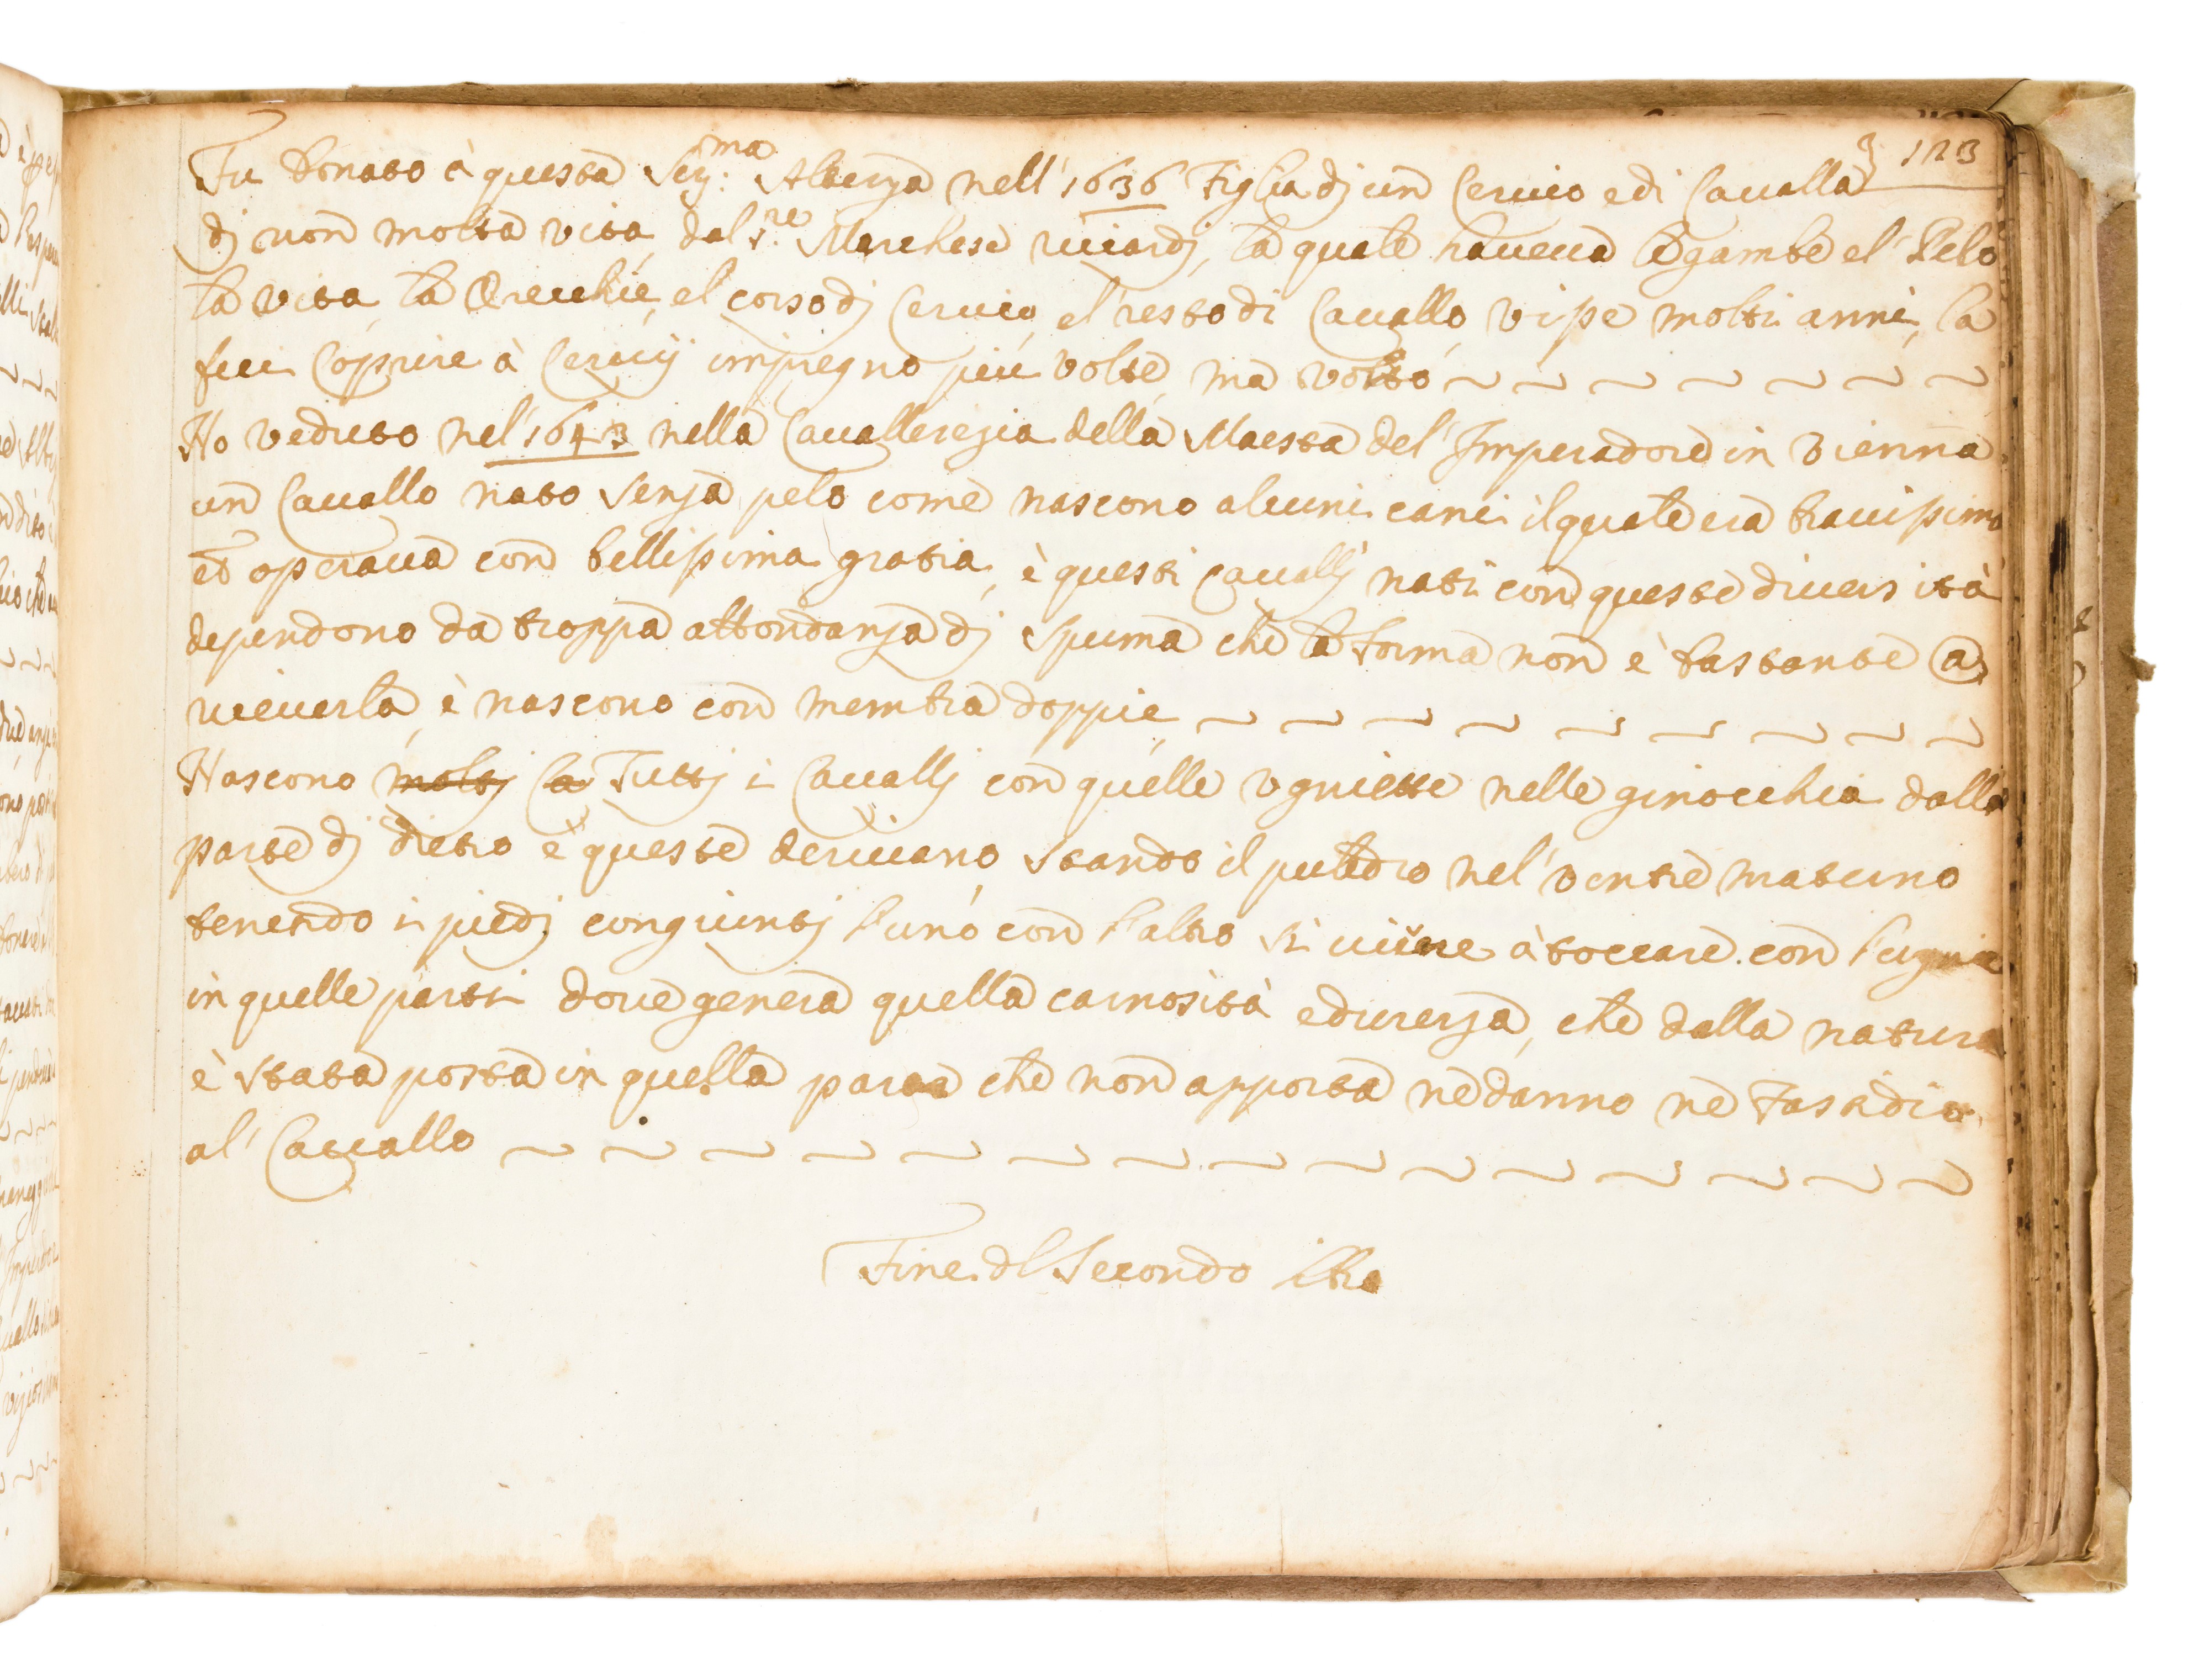 123
Fu donato à questa Ser:ma Altezza nell' 1636 Figlia dj un Ceruio e di Caualla
dj non molta vita, dal s.re Marchese ricciardj, la quale haueua le gambe el' Pelo
la vita la Orecchie, el' corso dj Ceruio, el' resto di Cauallo, visse molti anni, la
feci Coprire à Ceruij impregno più volte, ma voltò
Ho veduto nel' 1643 nella Caualleregia della Maestà del' Imperadore in Vienna
un Cauallo nato senza pelo come nascono alcuni cani il quale era brauissimo
et operaua con bellissima gratia, è questi Caualli nati con queste diuersità
dependono da troppa abbondanza dj spuma che la forma non è bastante a
riceuerla, è nascono con membra doppie
Nascono moltj Ca Tuttj i Cauallj con quelle vgniette nelle ginocchia dalla
parte dj dietro è queste deriuano stando il puledro nel' ventre materno
tenendo i piedj congiuntj l'uno con l'altro si uiene à toccare con l'ugnie
in quelle parti doue genera quella carnosità e durezza, che dalla natura
è stata posta in quella parte che non apporta ne danno ne Fastidio
al' Cauallo
Fine dl Secondo libro